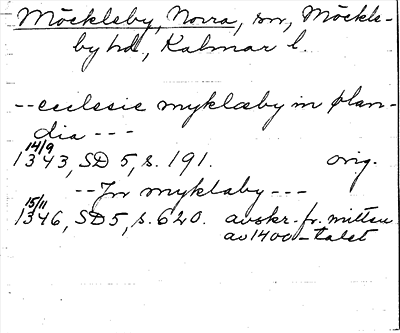 Möckleby, Norra, sn, Möckle-
by hd, Kalmar l.
--ecclesie myklæby in ølan-
dia ---
14/9
1343, SD 5, s. 191. orig.
--In myklaby---
15/11
1346, SD 5, s. 620. avskr. fr. mitten
av 1400-talet